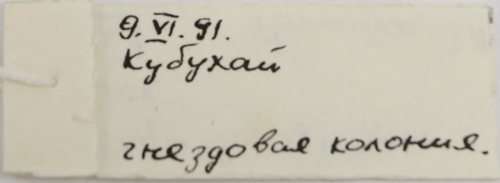 9.VI.91.
Кубухай
гнездовая колония.